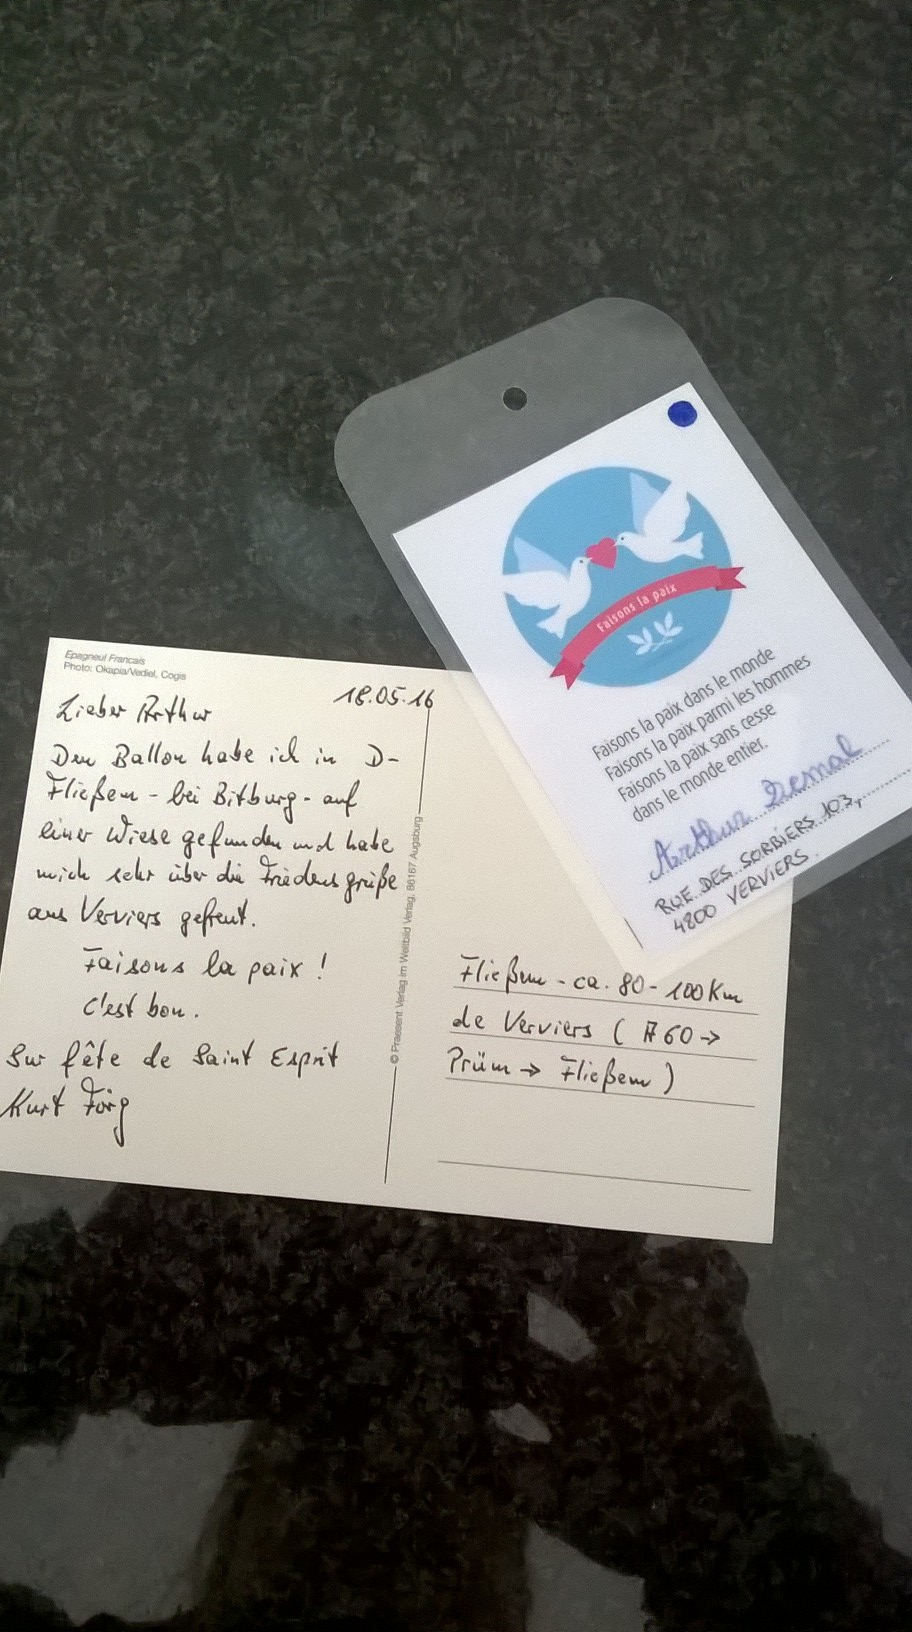 Faisons la paix
Faisons la paix dans le monde
Faisons la paix parmi les hommes
Faisons la paix sans cesse
dans le monde entier.
Arthur Demal
RUE DES SORBIERS 103,
4800 VERVIERS.
Epagneul Francais
Photo: Okapia/Vedie!, Cogis
18.05.16
Lieber Arthur
Den Ballon habe ich in D-
Fließem - bei Bitburg - auf
einer Wiese gefunden und habe
mich sehr über die Friedensgrüße
aus Verviers gefreut.
Faisons la paix !
c'est bon.
Sur fête de Saint Esprit
Kurt Förg
© Praesent Verlag im Weltbild Verlag, 86167 Augsburg
Fließem - ca. 80 - 100 Km
de Verviers ( A60 →
Prüm → Fließem )